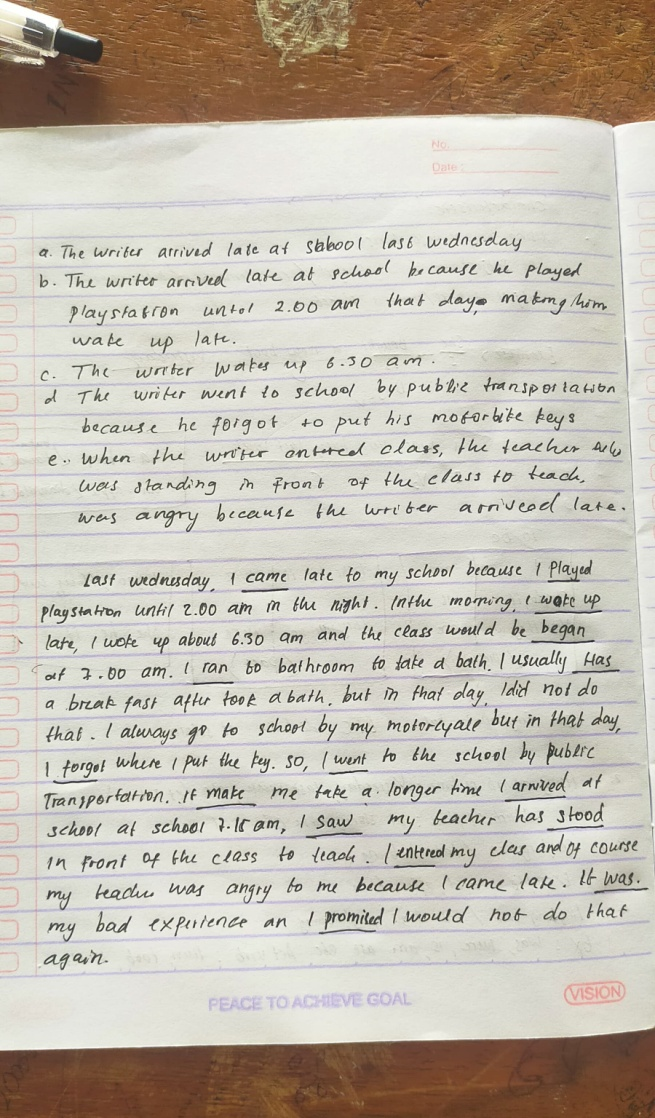 No.
Date :
a. The writer arrived late at school last wednesday
b. The writer arrived late at school because he played
playstation until 2.00 am that day, making him
wake up late.
c. The writer wakes up 6.30 am.
d The writer went to school by public transportation
because he forgot to put his motorbike keys
e. When the writer entered class, the teacher
was standing in front of the class to teach,
was angry because the writer arriveed late.
Last wednesday, I came late to my school because I played
playstation until 2.00 am in the night. In the morning, I woke up
late, I woke up about 6.30 am and the class would be began
at 7.00 am. I ran to bathroom to take a bath. I usually Has
a break fast after took a bath, but in that day, I did not do
that. I always go to school by my motorcycale but in that day,
I forgot where I put the key. so, I went to the school by public
Transportation. It make me take a longer time I arrived at
school at school 7.15 am, I saw my teacher has stood
in front of the class to teach. I entered my clas and of course
my teacher was angry to me because I came late. It was.
my bad experience an I promised I would not do that
again.
PEACE TO ACHIEVE GOAL
VISION